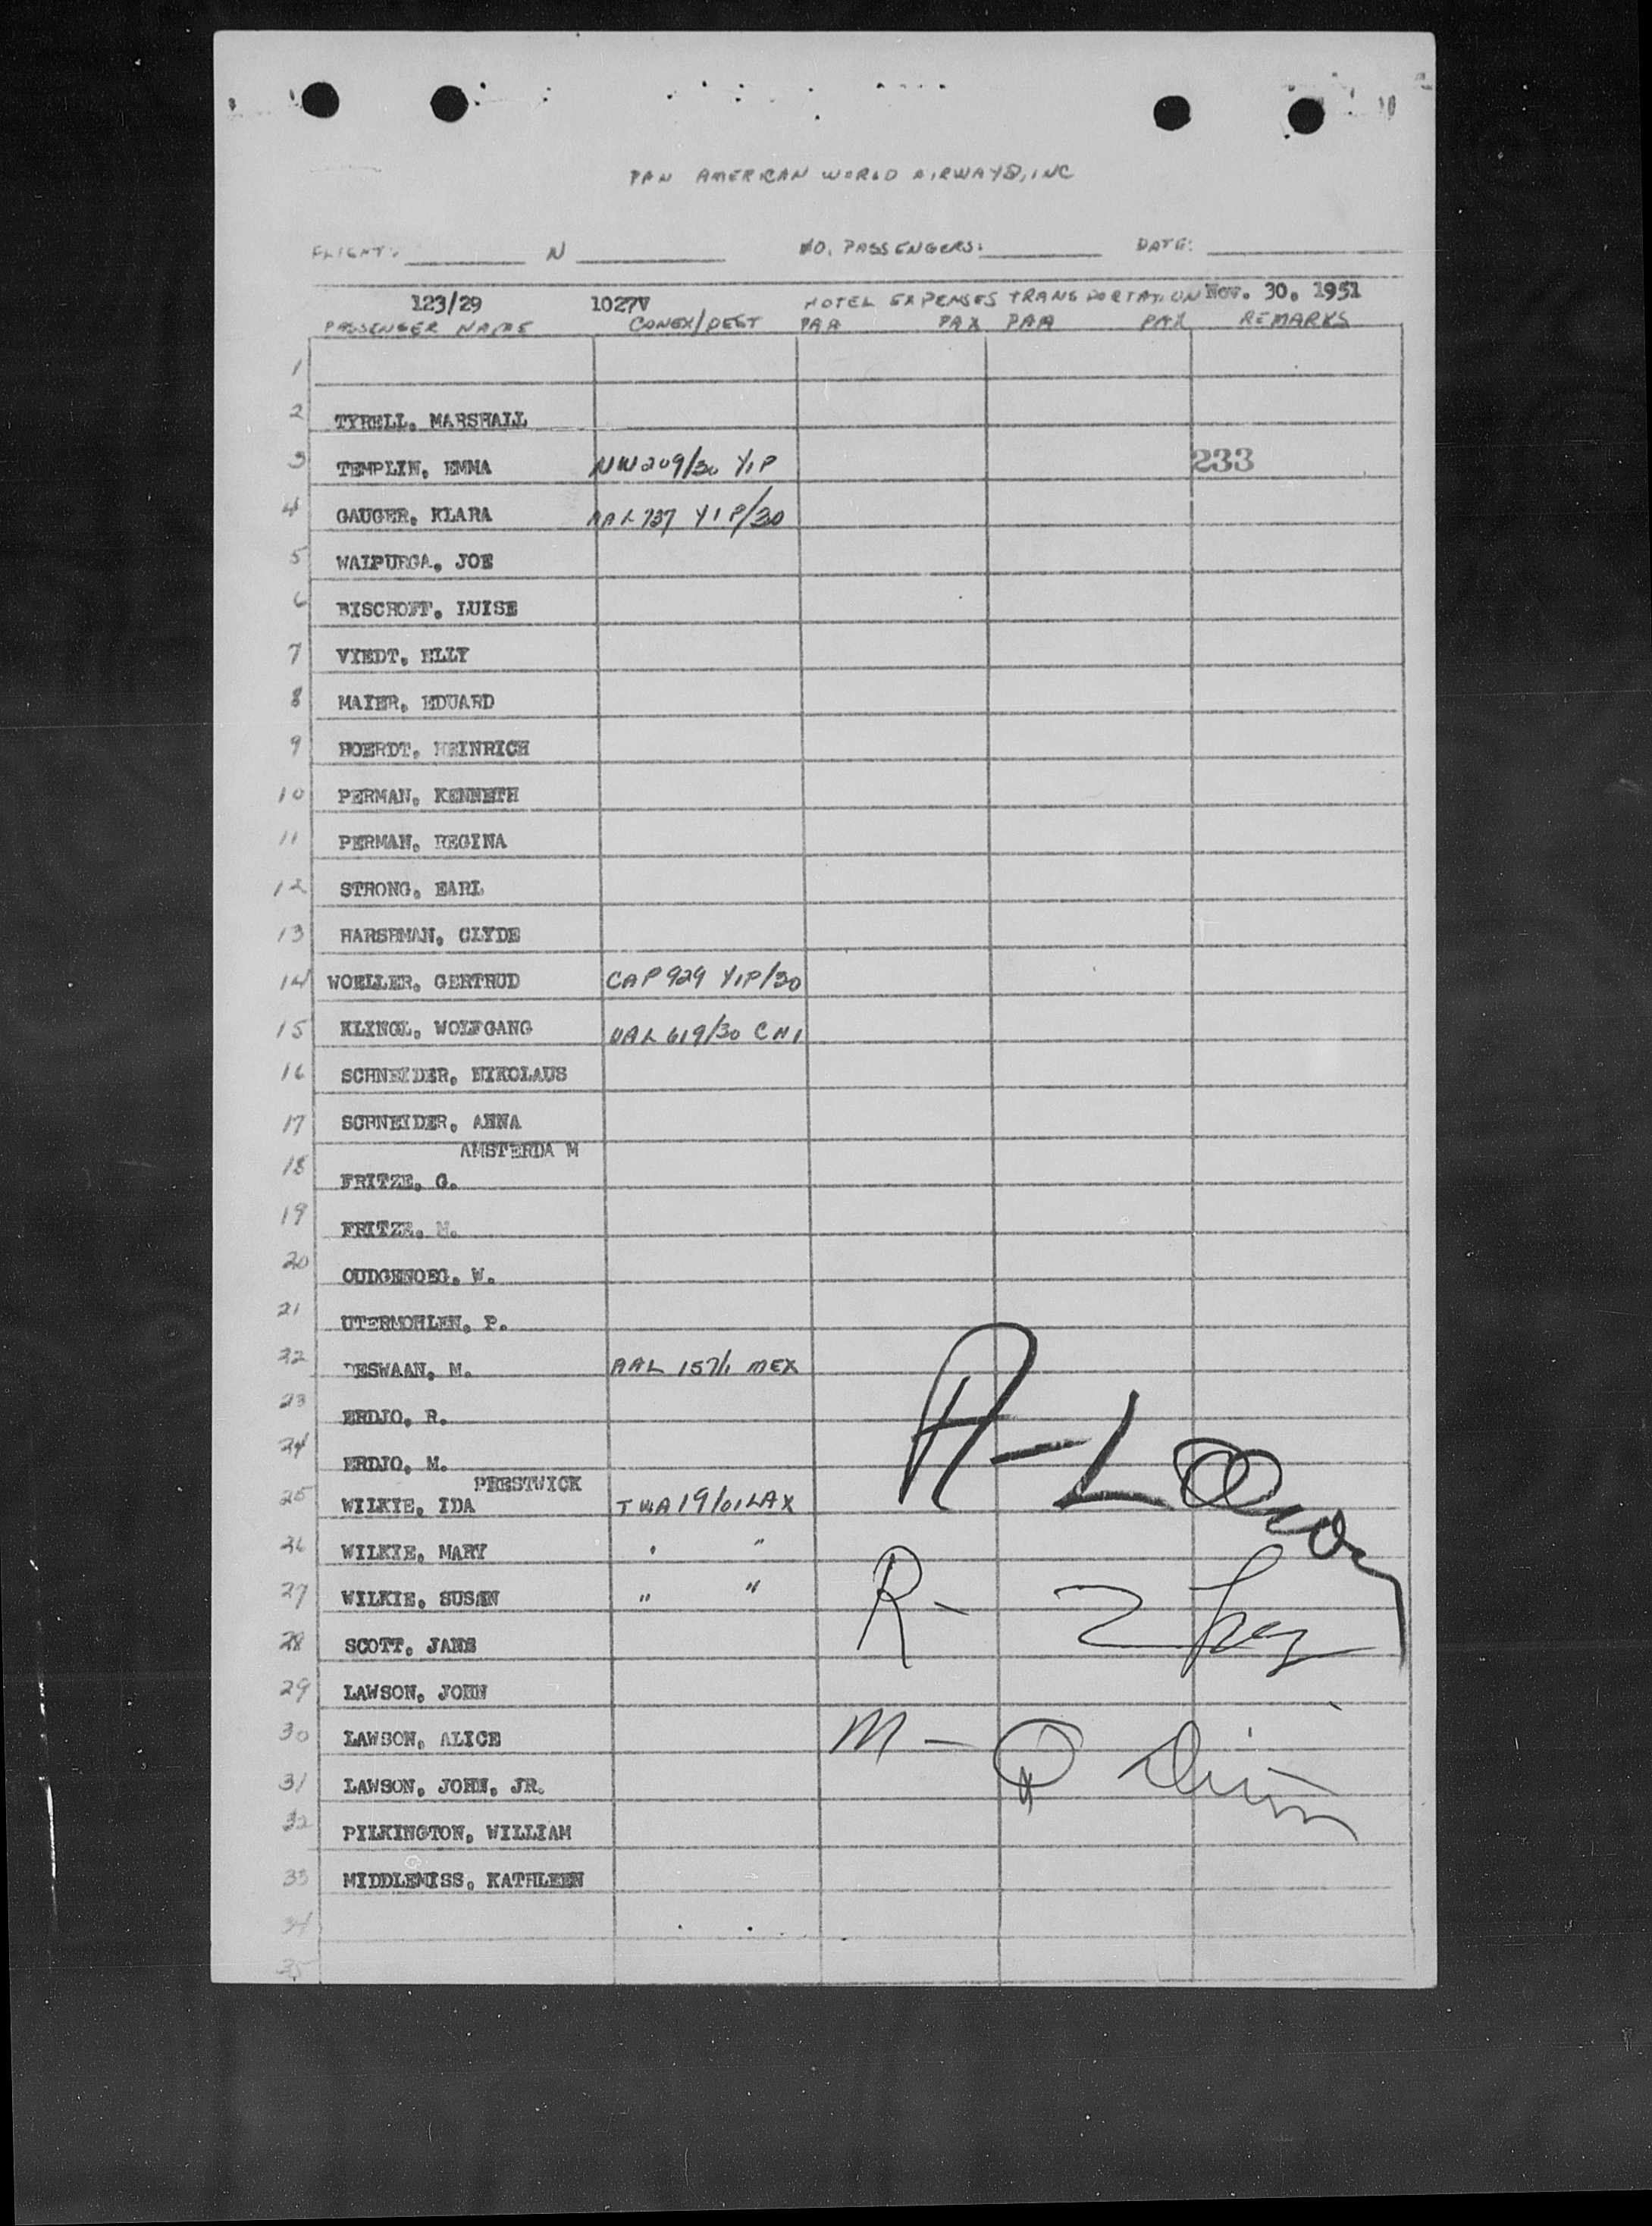 PAN AMERICAN WORLD AIRWAYS, INC
FLIGHT: N NO. PASSENGERS: DATE:
123/29 1027V HOTEL EXPENSES TRANSPORTATION Nov. 30, 1951
PASSENGER NAME CONEX/DEST PAA PAX PAA PAX REMARKS
1
2 TYRELL, MARSHALL
3 TEMPLIN, EMMA NW209/30 YIP 233
4 GAUGER, KLARA AAL737 YIP/30
5 WALPURGA, JOE
6 BISCHOFF, LUISE
7 VIEDT, ELLY
8 MAIER, EDUARD
9 HOERDT, HEINRICH
10 PERMAN, KENNETH
11 PERMAN, REGINA
12 STRONG, EARL
13 HARSHMAN, CLYDE
14 WOELLER, GERTRUD CAP 929 YIP/30
15 KLINGL, WOLFGANG UAL 619/30 CHI
16 SCHNEIDER, NIKOLAUS
17 SCHNEIDER, ANNA
AMSTERDA M
18 FRITZE, G.
19 FRITZE, M.
20 OUDGENOEG, W.
21 UTERMOHLEN, P.
22 DESWAAN, M. AAL 157/1 MEX
23 ERDJO, R.
24 ERDJO, M.
PRESTWICK
25 WILKIE, IDA TWA 19/01 LAX
26 WILKIE, MARY " "
27 WILKIE, SUSAN " "
28 SCOTT, JANE
29 LAWSON, JOHN
30 LAWSON, ALICE
31 LAWSON, JOHN, JR.
32 PILKINGTON, WILLIAM
33 MIDDLEMISS, KATHLEEN
34
35